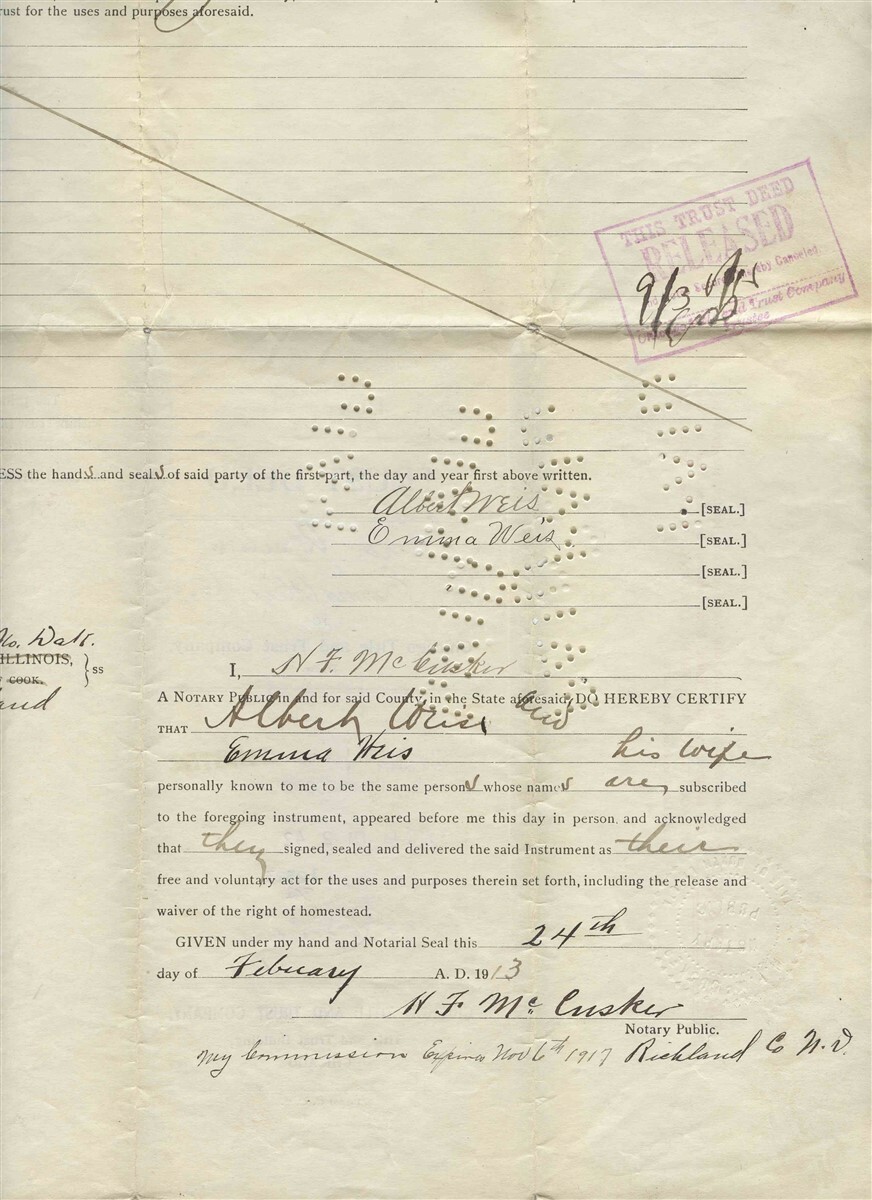 rust for the uses and purposes aforesaid.
THIS TRUST DEED
RELEASED
by Canceled
Trust Company
Trustee
9/3
ESS the hands and seals of said party of the first part, the day and year first above written.
Albert Weis [SEAL.]
Emma Weis [SEAL.]
[SEAL.]
[SEAL.]
No. Dak.
ILLINOIS, } ss
COOK.
and
I, H F. McCusker
A NOTARY PUBLIC in and for said County, in the State aforesaid, DO HEREBY CERTIFY
THAT Albert Weis and
Emma Weis his wife
personally known to me to be the same persons whose names are subscribed
to the foregoing instrument, appeared before me this day in person and acknowledged
that they signed, sealed and delivered the said Instrument as their
free and voluntary act for the uses and purposes therein set forth, including the release and
waiver of the right of homestead.
GIVEN under my hand and Notarial Seal this 24th
day of February A. D. 1913
H F McCusker
Notary Public.
My Commission Expires Nov 6th 1917 Richland Co N.D.